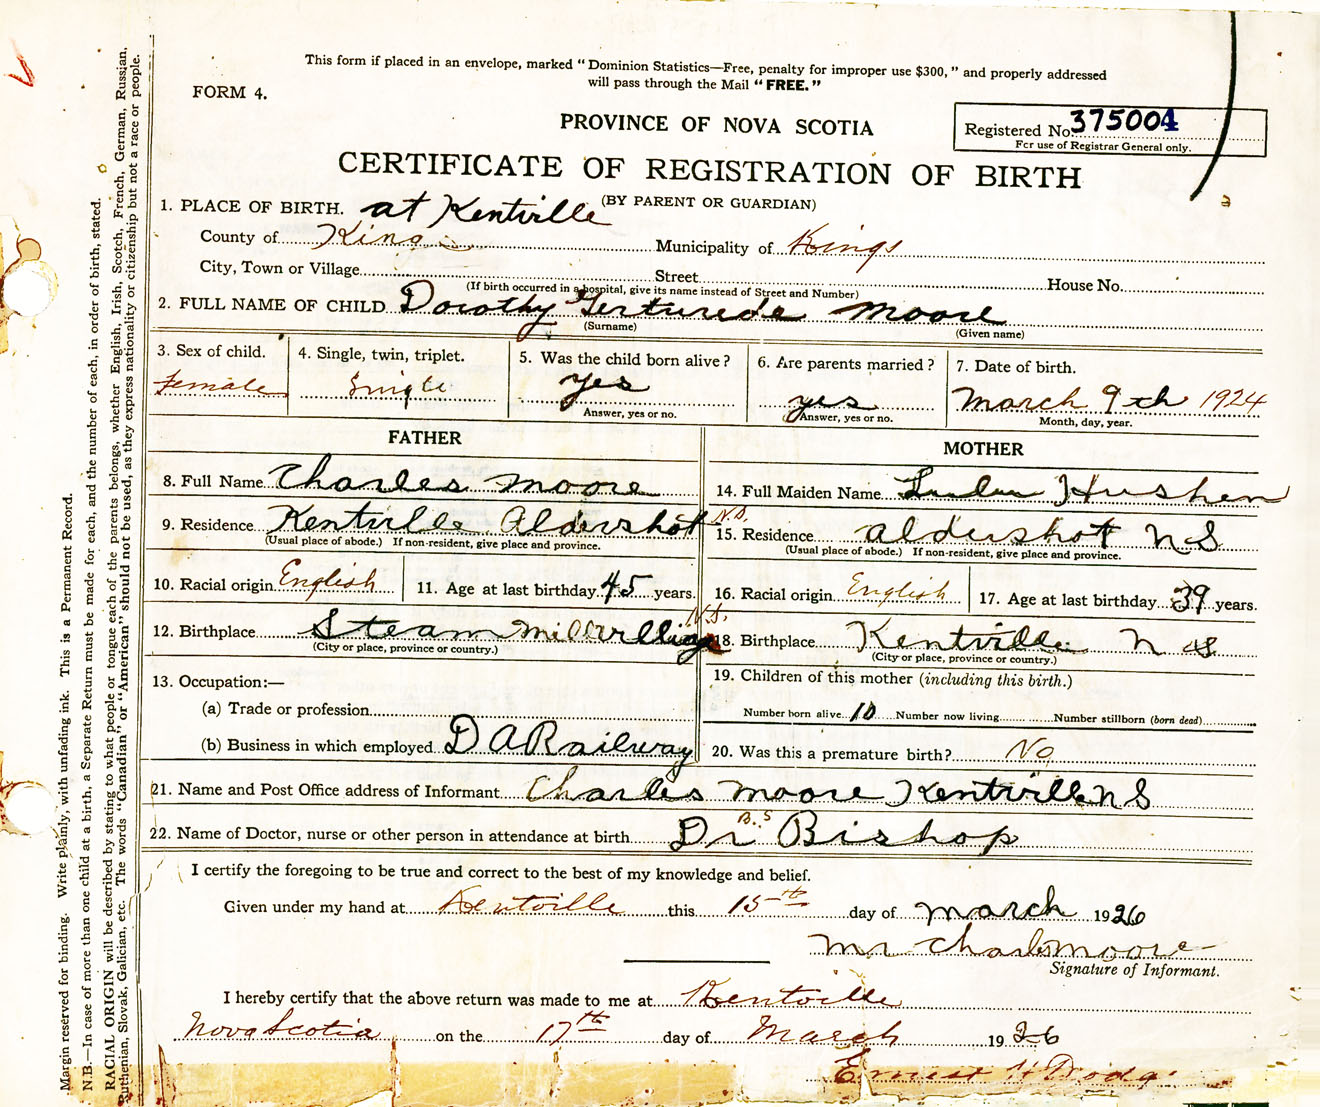 This form if placed in an envelope, marked "Dominion Statistics—Free, penalty for improper use $300," and properly addressed
will pass through the Mail "FREE."
FORM 4.
PROVINCE OF NOVA SCOTIA
Registered No. 375004
For use of Registrar General only.
CERTIFICATE OF REGISTRATION OF BIRTH
(BY PARENT OR GUARDIAN)
1. PLACE OF BIRTH. at Kentville
County of Kings Municipality of Kings
City, Town or Village Street House No.
(If birth occurred in a hospital, give its name instead of Street and Number)
2. FULL NAME OF CHILD Dorothy Gerturede Moore
(Surname) (Given name)
3. Sex of child. 4. Single, twin, triplet. 5. Was the child born alive? 6. Are parents married? 7. Date of birth.
Female Single yes yes March 9th 1924
Answer, yes or no. Answer, yes or no. Month, day, year.
FATHER MOTHER
8. Full Name Charles Moore 14. Full Maiden Name Lulu Hushen
9. Residence Kentville Aldershot N.S. 15. Residence aldershot N S
(Usual place of abode.) If non-resident, give place and province. (Usual place of abode.) If non-resident, give place and province.
10. Racial origin English 11. Age at last birthday 45 years. 16. Racial origin English 17. Age at last birthday 39 years.
12. Birthplace Steam Mill Village N.S. 18. Birthplace Kentville N S
(City or place, province or country.) (City or place, province or country.)
13. Occupation:— 19. Children of this mother (including this birth.)
(a) Trade or profession Number born alive 10 Number now living Number stillborn (born dead)
(b) Business in which employed D A Railway 20. Was this a premature birth? No
21. Name and Post Office address of Informant Charles Moore Kentville N S
22. Name of Doctor, nurse or other person in attendance at birth Dr B.S Bishop
I certify the foregoing to be true and correct to the best of my knowledge and belief.
Given under my hand at Kentville this 15th day of March 1926
Mr Charles Moore
Signature of Informant.
I hereby certify that the above return was made to me at Kentville
Nova Scotia on the 17th day of March 1926
Ernest H Dodge
Margin reserved for binding. Write plainly, with unfading ink. This is a Permanent Record.
N.B.—In case of more than one child at a birth, a Separate Return must be made for each, and the number of each, in order of birth, stated.
RACIAL ORIGIN will be described by stating to what people or tongue each of the parents belongs, whether English, Irish, Scotch, French, German, Russian,
Ruthenian, Slovak, Galician, etc. The words "Canadian" or "American" should not be used, as they express nationality or citizenship but not a race or people.